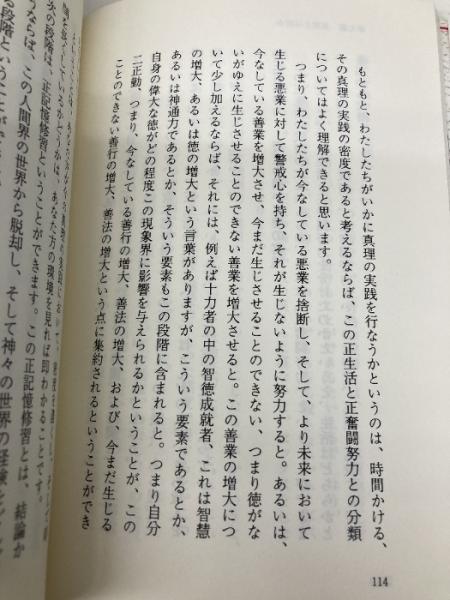 もともと、わたしたちがいかに真理の実践を行なうかというのは、時間かける、
その真理の実践の密度であると考えるならば、この正生活と正奮闘努力との分類
についてはよく理解できると思います。
つまり、わたしたちが今なしている悪業を捨断し、そして、より未来において
生じる悪業に対して警戒心を持ち、それが生じないように努力すると。あるいは、
今なしている善業を増大させ、今まだ生じさせることのできない、つまり徳がな
いがゆえに生じさせることのできない善業を増大させると。この善業の増大につ
いて少し加えるならば、それには、例えば十力者の中の智徳成就者、これは智慧
の増大、あるいは徳の増大という言葉がありますが、こういう要素であるとか、
あるいは神通力であるとか、そういう要素もこの段階に含まれると。つまり自分
自身の偉大な徳がどの程度この現象界に影響を与えられるかということが、この
二正勤、つまり、今なしている善行の増大、善法の増大、および、今まだ生じる
ことのできない善行の増大、善法の増大という点に集約されるということができ
114
かは、あなた方の環境を見れば即わかることです。
次の段階は、正記憶修習ということができます。この正記憶修習とは、結論か
うならば、この人間界の世界から脱却し、そして神々の世界の経験
る段階ということが